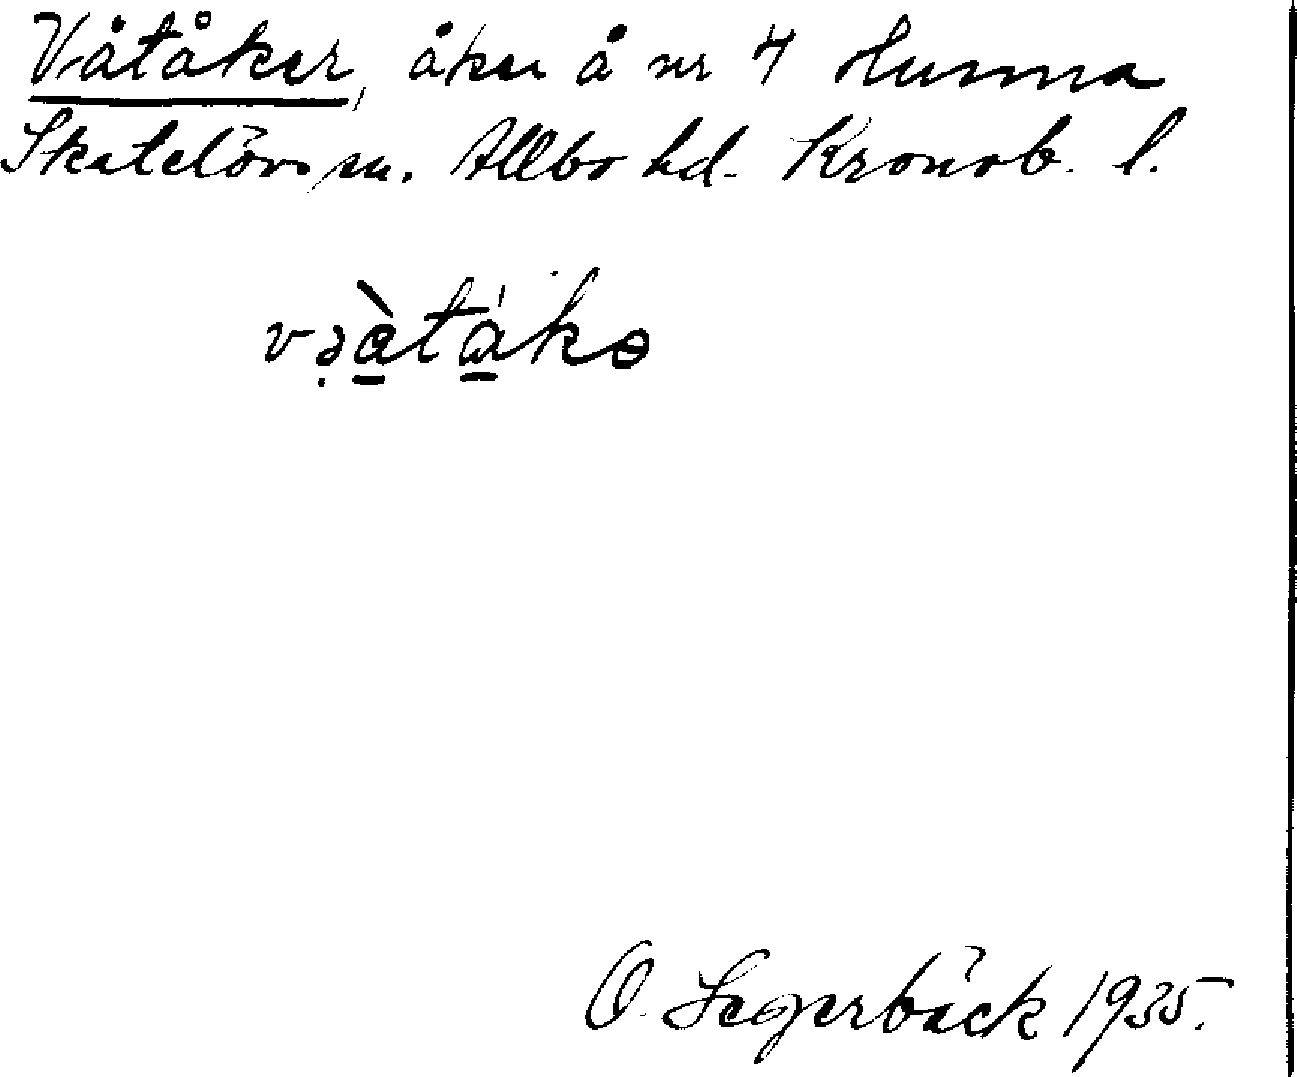 Våtåker, åker å nr 4 Hunna
Skatelövs sn. Allbo hd. Kronob. l.
və̣à̱tá̱kɵ
O. Segerbäck 1935.